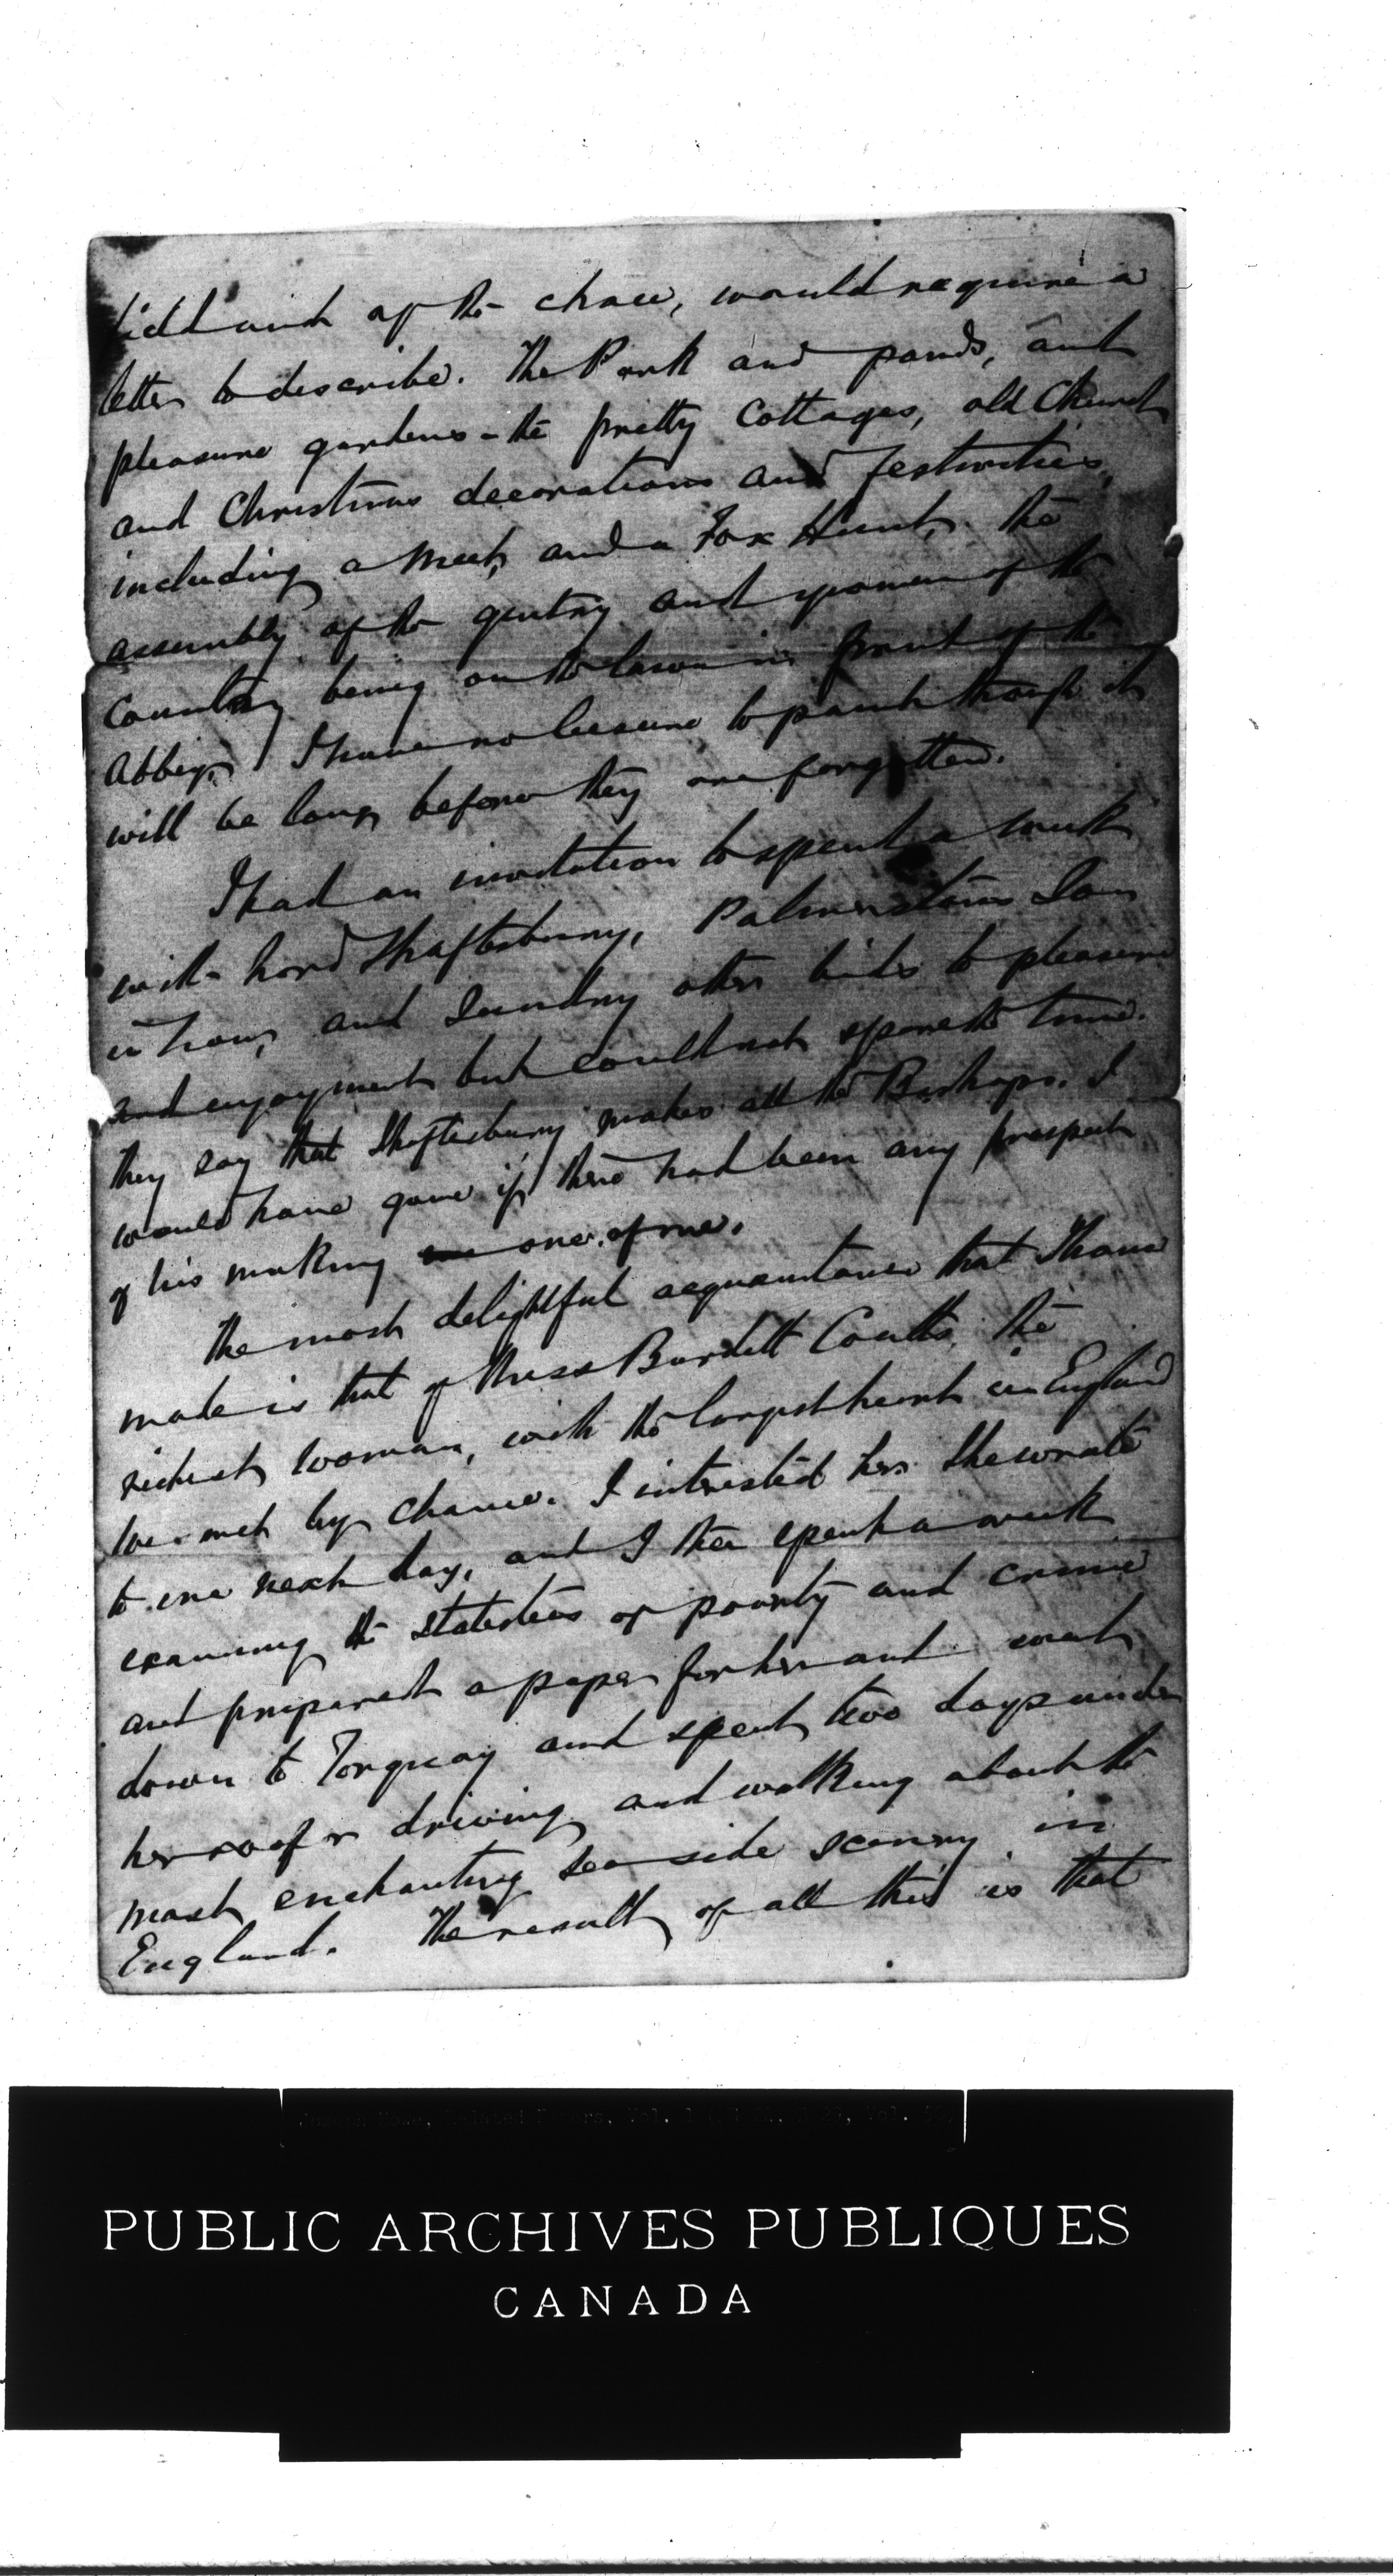 field and of the chace, would require a
letter to describe. The Park and ponds, and
pleasure gardens - the pretty Cottages, old Church
and Christmas decorations and festivities,
including a Meet, and a Fox Hunt, the
assembly of the gentry and yeomen of the
Country being on the lawn in front of the
Abbey. I have no leisure to paint though it
will be long before they are forgotten.
I had an invitation to spend a week
with Lord Shaftesbury, Palmerston's Son
in Law, and Sundry other bids to pleasure
and enjoyment but could not spare the time.
They say that Shaftesbury makes all the Bishops. I
would have gone if there had been any prospect
of his making one of me.
The most delightful acquaintance that I have
made is that of Miss Burdett Coutts, the
richest woman, with the largest heart in England
We met by chance. I interested her. She wrote
to me next day, and I then spent a week
examing the statistics of poverty and crime
and prepared a paper for her and went
down to Torquay and spent two days under
her roof driving and walking about the
most enchanting sea side scenery in
England. The result of all this is that
PUBLIC ARCHIVES PUBLIQUES
CANADA